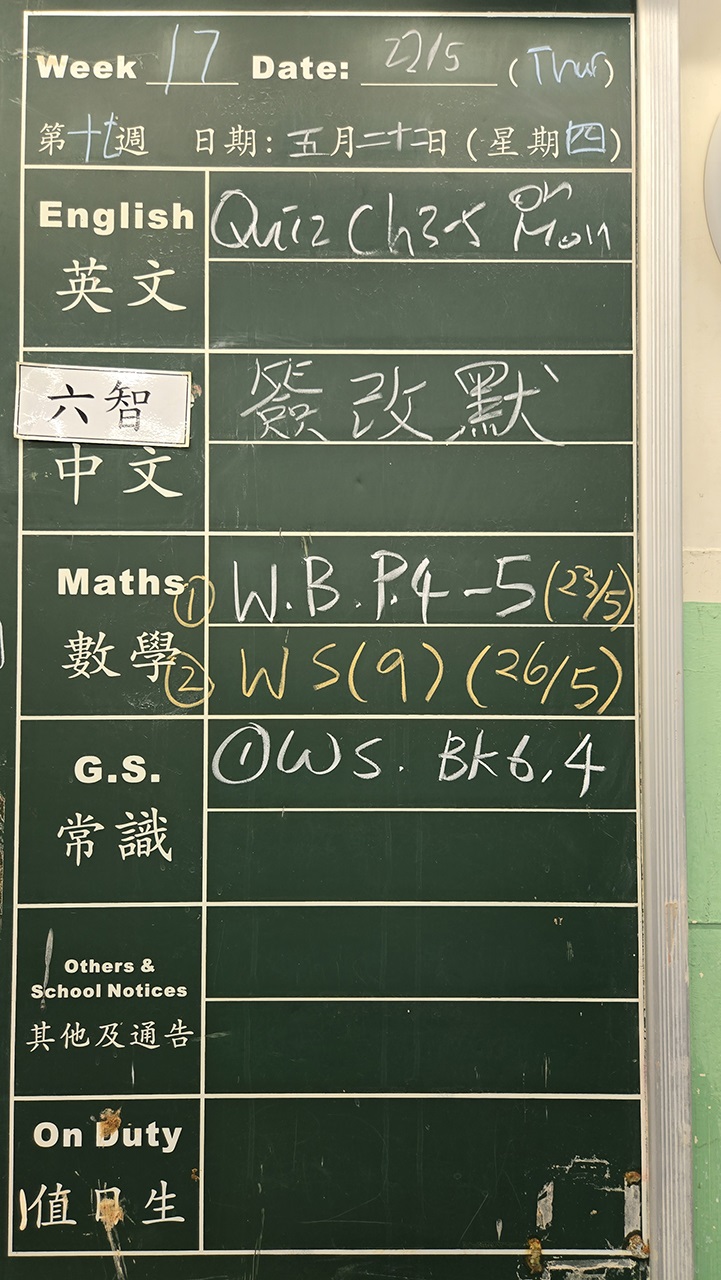 Week 17 Date: 22/5 (Thur)
第十七週 日期: 五月二十二日 (星期四)
English Quiz Ch3-5 on Mon
英文
六智 簽改默
中文
Maths ① W.B. P.4-5 (23/5)
數學 ② WS(9) (26/5)
G.S. ① WS. BK6,4
常識
Others &
School Notices
其他及通告
On Duty
值日生